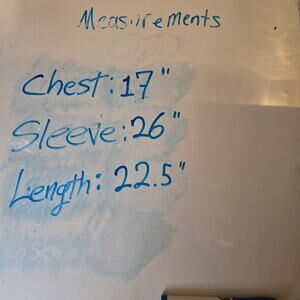 Measurements
Chest: 17"
Sleeve: 26"
Length: 22.5"